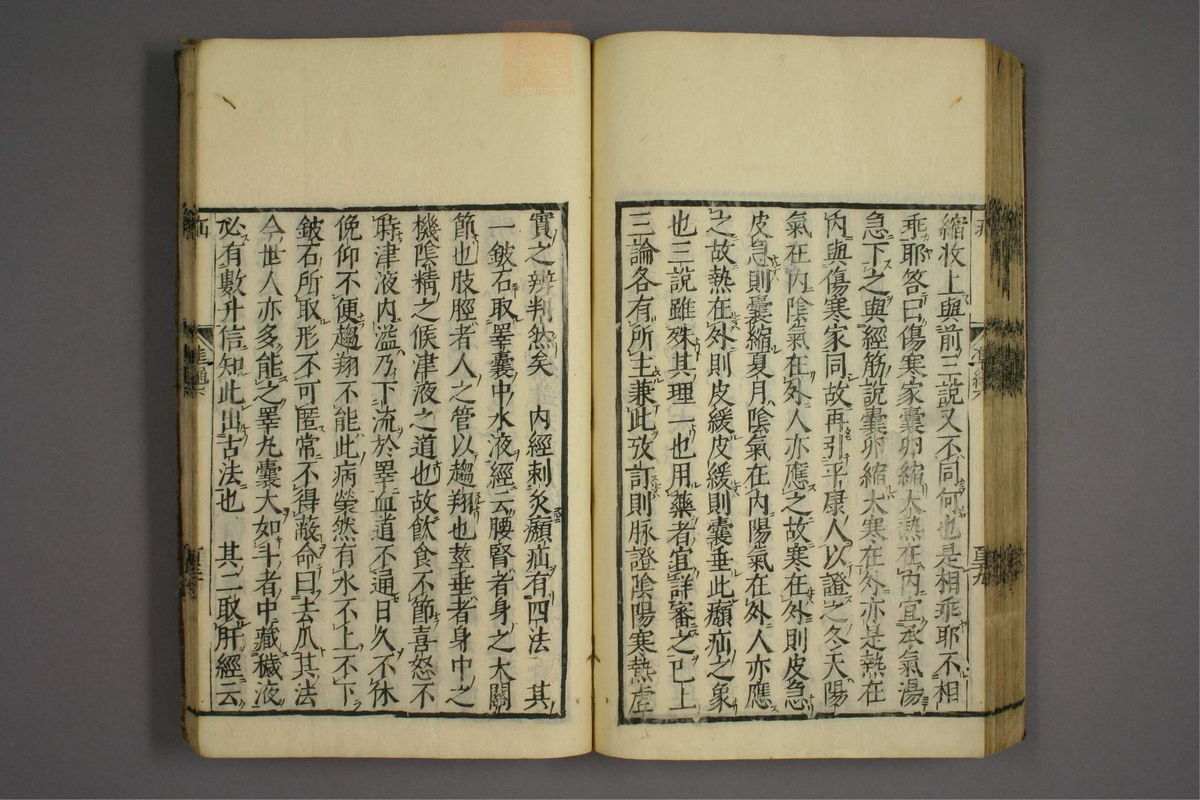 縮收上與前三說又不同何也是相乖耶不相
乖耶答曰傷寒家囊卵縮大熱在內宜承氣湯
急下之與經筋說囊卵縮大寒在外亦是熱在
內與傷寒家同故再引平康人以證之冬天陽
氣在內陰氣在外人亦應之故寒在外則皮急
皮急則囊縮夏月陰氣在內陽氣在外人亦應
之故熱在外則皮緩皮緩則囊垂此癩疝之象
也三說雖殊其理一也用藥者宜詳審之已上
三論各有所主兼此攷訂則脉證陰陽寒熱虛
實之辨判然矣　內經刺灸癩疝有四法　其
一鈹石取睪囊中水液經云腰腎者身之大關
節也肢脛者人之管以趨翔也莖垂者身中之
機陰精之候津液之道也故飲食不節喜怒不
時津液內溢乃下流於睪血道不通日久不休
俛仰不便趨翔不能此病滎然有水不上不下
鈹石所取形不可匿常不得蔽命曰去爪其法
今世人亦多能之睪丸囊大如斗者中藏穢液
必有數升信知此出古法也　其二取肝經云